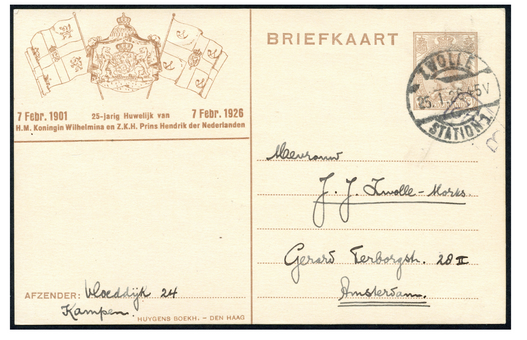 7 Febr. 1901
25-jarig Huwelijk van
7 Febr. 1926
H.M. Koningin Wilhelmina en Z.K.H. Prins Hendrik der Nederlanden
BRIEFKAART
ZWOLLE
STATION 1
Mevrouw
J. J. Zwolle-Morks
Gerard Terborgstr. 28 II
Amsterdam.
AFZENDER: Vloeddijk 24
Kampen.
HUYGENS BOEKH. - DEN HAAG